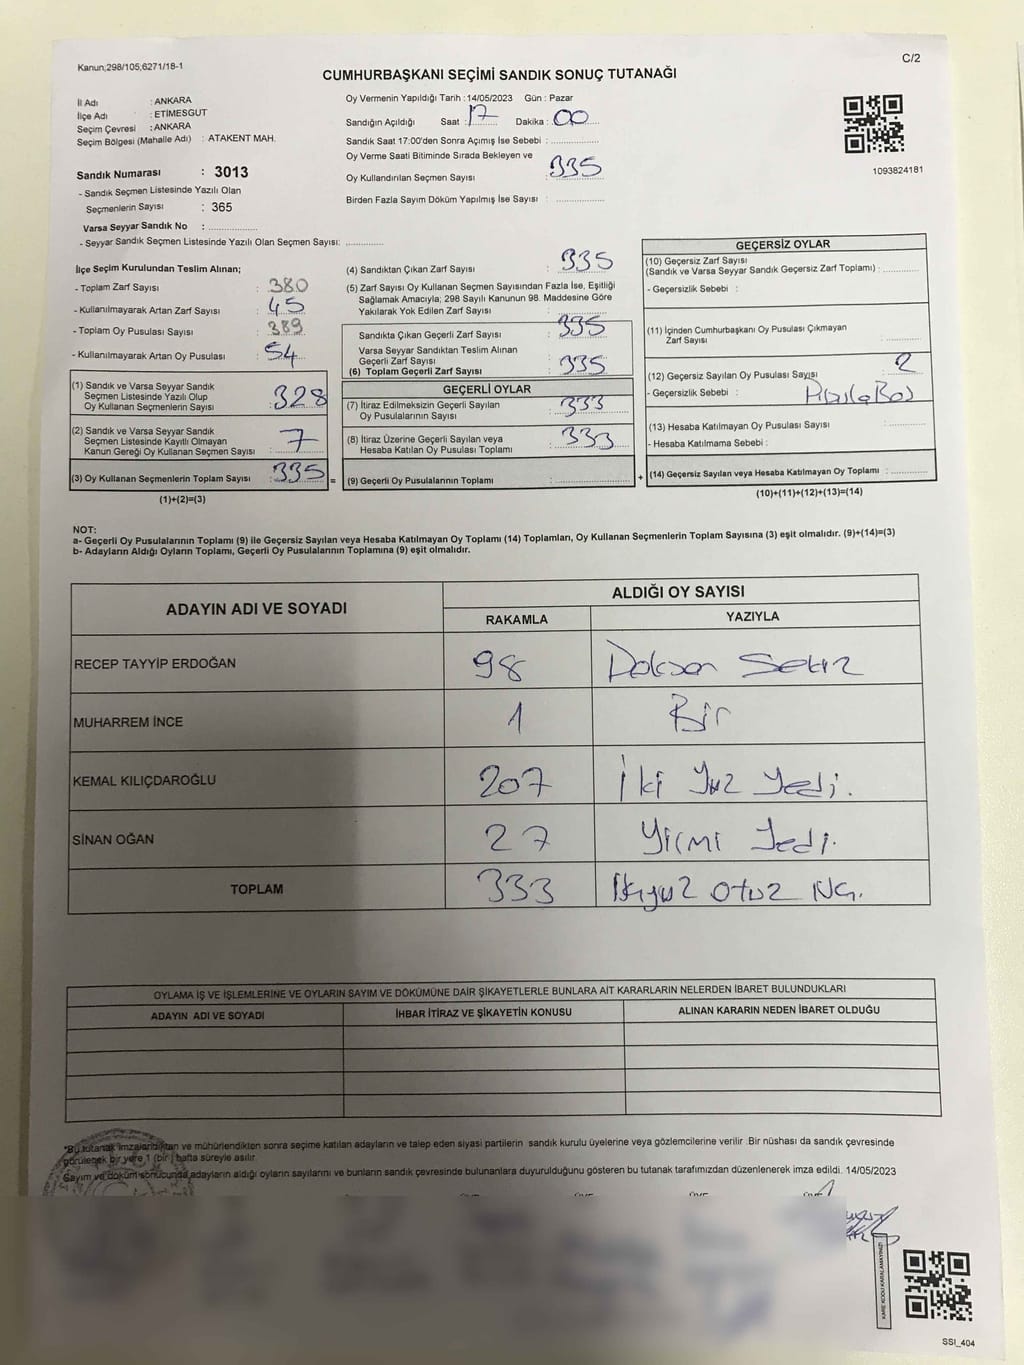 Kanun;298/105;6271/18-1
C/2
CUMHURBAŞKANI SEÇİMİ SANDIK SONUÇ TUTANAĞI
İl Adı : ANKARA
İlçe Adı : ETİMESGUT
Seçim Çevresi : ANKARA
Seçim Bölgesi (Mahalle Adı) : ATAKENT MAH.
Sandık Numarası : 3013
- Sandık Seçmen Listesinde Yazılı Olan
Seçmenlerin Sayısı : 365
Varsa Seyyar Sandık No :
- Seyyar Sandık Seçmen Listesinde Yazılı Olan Seçmen Sayısı:
Oy Vermenin Yapıldığı Tarih : 14/05/2023 Gün : Pazar
Sandığın Açıldığı Saat : 17 Dakika : 00
Sandık Saat 17:00'den Sonra Açımış İse Sebebi :
Oy Verme Saati Bitiminde Sırada Bekleyen ve
Oy Kullandırılan Seçmen Sayısı : 335
Birden Fazla Sayım Döküm Yapılmış İse Sayısı :
1093824181
İlçe Seçim Kurulundan Teslim Alınan;
- Toplam Zarf Sayısı : 380
- Kullanılmayarak Artan Zarf Sayısı : 45
- Toplam Oy Pusulası Sayısı : 389
- Kullanılmayarak Artan Oy Pusulası : 54
(1) Sandık ve Varsa Seyyar Sandık
Seçmen Listesinde Yazılı Olup
Oy Kullanan Seçmenlerin Sayısı : 328
(2) Sandık ve Varsa Seyyar Sandık
Seçmen Listesinde Kayıtlı Olmayan
Kanun Gereği Oy Kullanan Seçmen Sayısı : 7
(3) Oy Kullanan Seçmenlerin Toplam Sayısı : 335 =
(1)+(2)=(3)
(4) Sandıktan Çıkan Zarf Sayısı : 335
(5) Zarf Sayısı Oy Kullanan Seçmen Sayısından Fazla İse, Eşitliği
Sağlamak Amacıyla; 298 Sayılı Kanunun 98. Maddesine Göre
Yakılarak Yok Edilen Zarf Sayısı :
Sandıkta Çıkan Geçerli Zarf Sayısı : 335
Varsa Seyyar Sandıktan Teslim Alınan
Geçerli Zarf Sayısı
(6) Toplam Geçerli Zarf Sayısı : 335
GEÇERLİ OYLAR
(7) İtiraz Edilmeksizin Geçerli Sayılan
Oy Pusulalarının Sayısı : 333
(8) İtiraz Üzerine Geçerli Sayılan veya
Hesaba Katılan Oy Pusulası Toplamı : 333
(9) Geçerli Oy Pusulalarının Toplamı : +
GEÇERSİZ OYLAR
(10) Geçersiz Zarf Sayısı
(Sandık ve Varsa Seyyar Sandık Geçersiz Zarf Toplamı) :
- Geçersizlik Sebebi :
(11) İçinden Cumhurbaşkanı Oy Pusulası Çıkmayan
Zarf Sayısı :
(12) Geçersiz Sayılan Oy Pusulası Sayısı : 2
- Geçersizlik Sebebi :
(13) Hesaba Katılmayan Oy Pusulası Sayısı :
- Hesaba Katılmama Sebebi :
(14) Geçersiz Sayılan veya Hesaba Katılmayan Oy Toplamı :
(10)+(11)+(12)+(13)=(14)
NOT:
a- Geçerli Oy Pusulalarının Toplamı (9) ile Geçersiz Sayılan veya Hesaba Katılmayan Oy Toplamı (14) Toplamları, Oy Kullanan Seçmenlerin Toplam Sayısına (3) eşit olmalıdır. (9)+(14)=(3)
b- Adayların Aldığı Oyların Toplamı, Geçerli Oy Pusulalarının Toplamına (9) eşit olmalıdır.
ADAYIN ADI VE SOYADI ALDIĞI OY SAYISI
RAKAMLA YAZIYLA
RECEP TAYYİP ERDOĞAN 98 Doksan Sekiz
MUHARREM İNCE 1 Bir
KEMAL KILIÇDAROĞLU 207 İki Yüz Yedi.
SİNAN OĞAN 27 Yirmi Yedi.
TOPLAM 333 otuz
OYLAMA İŞ VE İŞLEMLERİNE VE OYLARIN SAYIM VE DÖKÜMÜNE DAİR ŞİKAYETLERLE BUNLARA AİT KARARLARIN NELERDEN İBARET BULUNDUKLARI
ADAYIN ADI VE SOYADI İHBAR İTİRAZ VE ŞİKAYETİN KONUSU ALINAN KARARIN NEDEN İBARET OLDUĞU
*Bu tutanak imzalandıktan ve mühürlendikten sonra seçime katılan adayların ve talep eden siyasi partilerin sandık kurulu üyelerine veya gözlemcilerine verilir .Bir nüshası da sandık çevresinde
görülecek bir yere 1 (bir ) hafta süreyle asılır.
Sayım ve döküm sonucunda adayların aldığı oyların sayılarını ve bunların sandık çevresinde bulunanlara duyurulduğunu gösteren bu tutanak tarafımızdan düzenlenerek imza edildi. 14/05/2023
KARE KODU KARALAMAYINIZ!
SSI_404